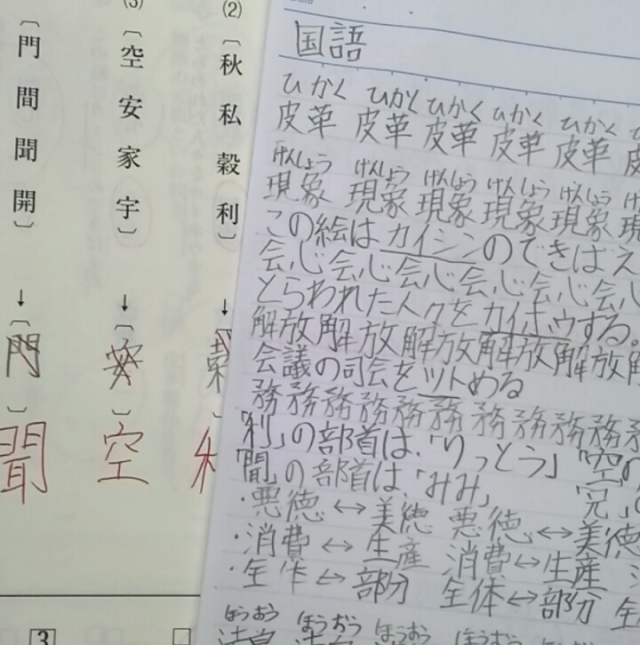 (2)
〔秋 私 穀 利〕
↓〔
〕
(3)
〔空 安 家 宇〕
↓〔安〕
空
〔門 間 聞 開〕
↓〔門〕
聞
3
国語
ひかく ひかく ひかく ひかく ひかく
皮革 皮革 皮革 皮革 皮革 皮
げんしょう げんしょう げんしょう げんしょう げんしょう げん
現象 現象 現象 現象 現象 現
この絵はカイシンのできはえ
会心会心会心会心会心会
とらわれた人々をカイホウする。
解放解放解放解放解放解
会議の司会をツトめる
務務務務務務務務務務務
「利」の部首は、「りっとう」「空の
「聞」の部首は、「みみ」 「宀」
・悪徳↔美徳 悪徳↔美徳
・消費↔生産 消費↔生産
・全体↔部分 全体↔部分 全
ほうおう ほうおう ほうおう ほうおう